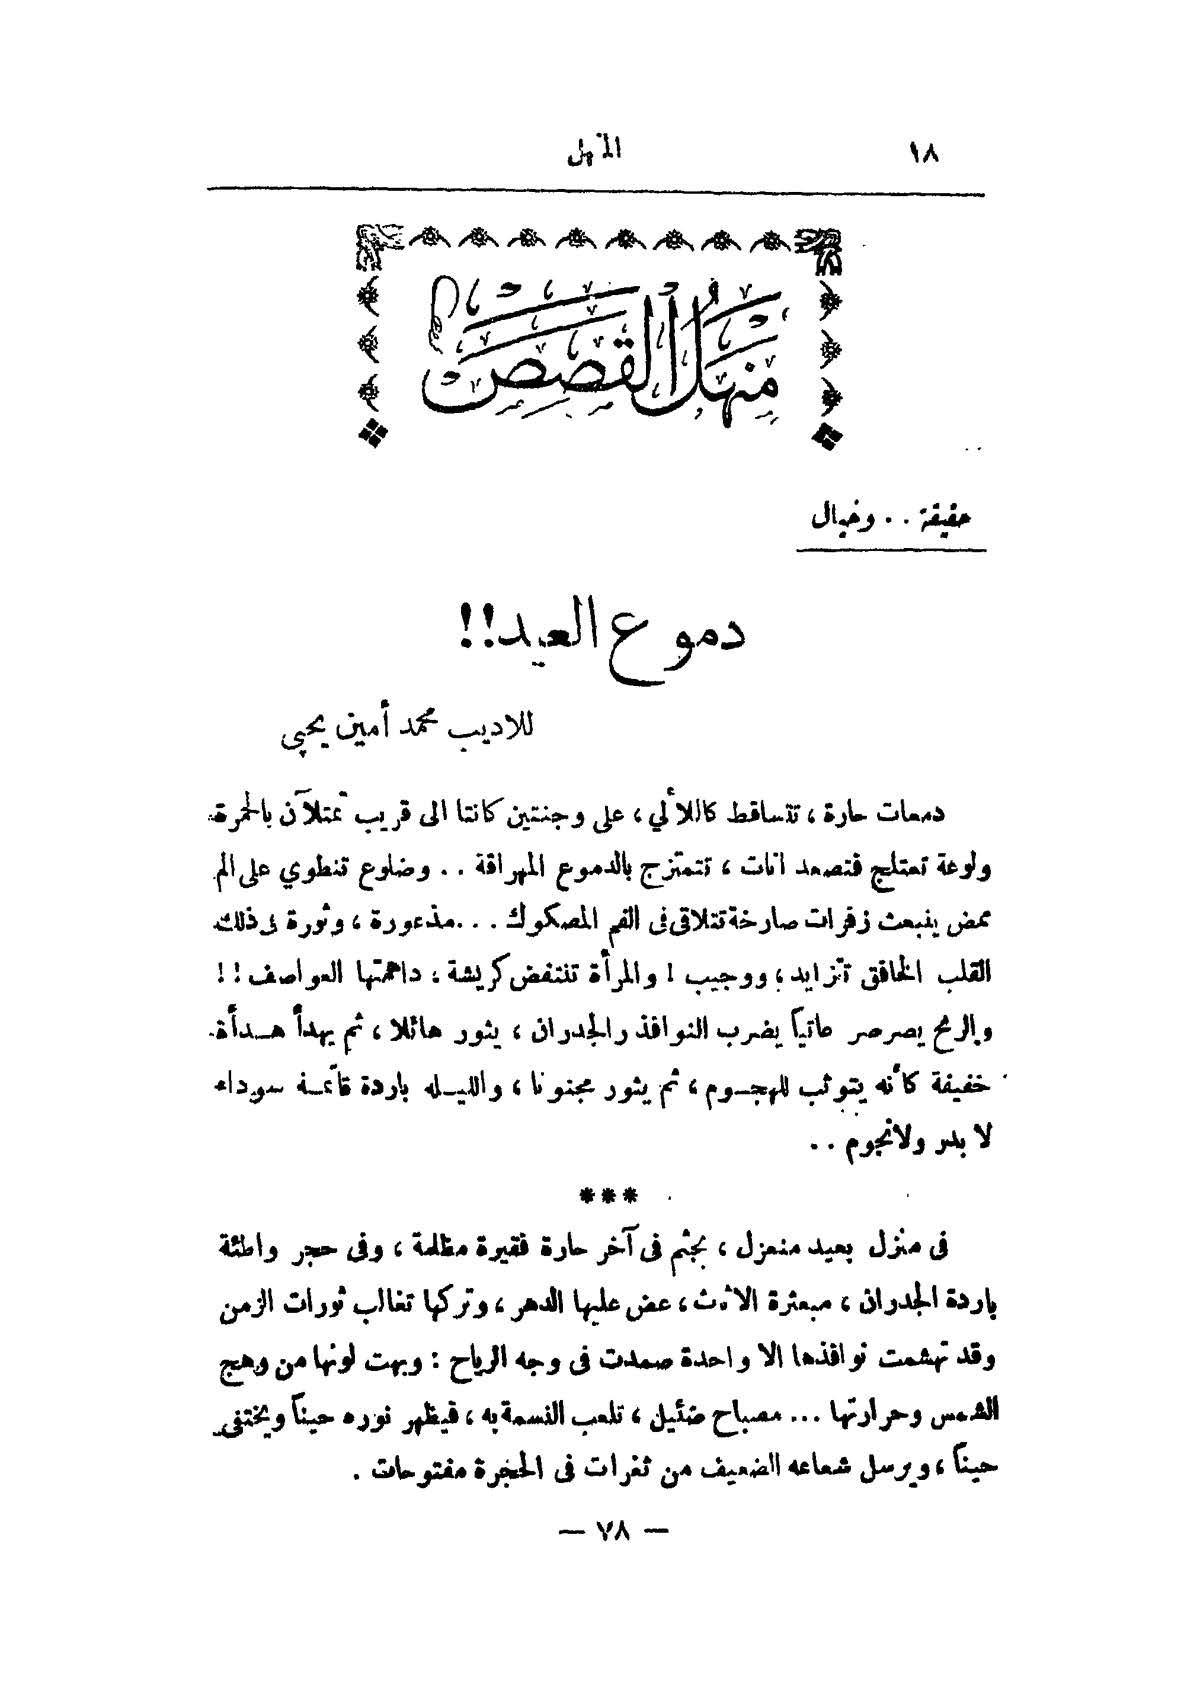 ١٨
المنهل
منهل القصص
حقيقة .. وخيال
دموع العيد!!
للاديب محمد أمين يحيى
دمعات حارة ، تتساقط كاللألي ، على وجنتين كانتا الى قريب تمتلآن بالحمرة
ولوعة تعتلج فتصعد انات ، تتمتزج بالدموع المهراقة .. وضلوع تنطوي على الم
ممض ينبعث زفرات صارخة تتلاقى فى الفم المصكوك ... مذعورة ، وثورة فى ذلك
القلب الخافق تتزايد ، ووجيب ! والمرأة تنتفض كريشة ، داهمتها العواصف !!
والريح يصرصر عاتياً يضرب النوافذ والجدران ، يثور هائلا ، ثم يهدأ هــدأة
خفيفة كأنه يتوثب للهجــوم ، ثم يثور مجنونا ، والليــله باردة قاتمــة سوداء
لا بدر ولانجوم ..
***
فى منزل بعيد منعزل ، يجثم فى آخر حارة فقيرة مظلمة ، وفى حجر واطئة
باردة الجدران ، مبعثرة الاثاث ، عض عليها الدهر ، وتركها تغالب ثورات الزمن
وقد تهشمت نوافذها الا واحدة صمدت فى وجه الرياح : وبهت لونها من وهج
الشمس وحرارتها ... مصباح ضئيل ، تلعب النسمة به ، فيظهر نوره حيناً ويختفى
حيناً ، ويرسل شعاعه الضعيف من ثغرات فى الحجرة مفتوحات .
— ٧٨ —